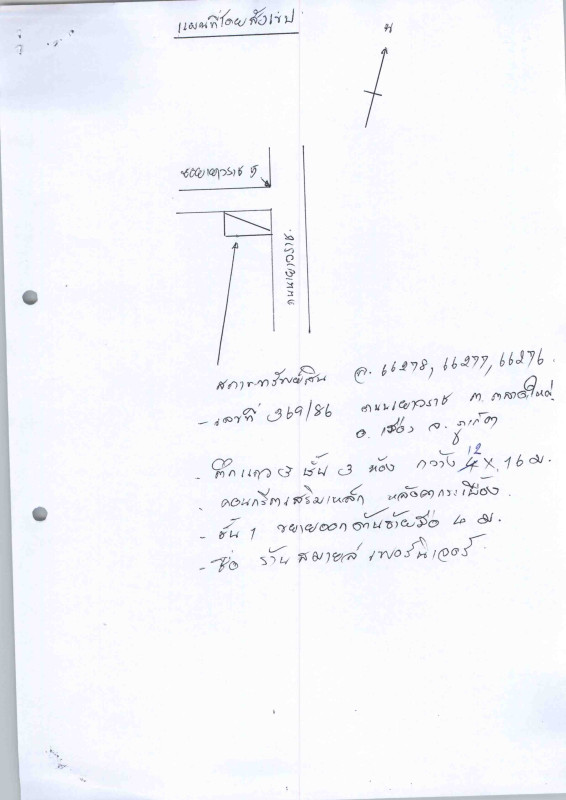 แผนที่โดยสังเขป
น
ซอยเยาวราช
ถนนเยาวราช.
สภาพทรัพย์สิน จ. 66278, 66277, 66276.
- เลขที่ 369/86 ถนนเยาวราช ต. ตลาดใหญ่
อ. เมือง จ. ภูเก็ต
- ตึกแถว 3 ชั้น 3 ห้อง กว้าง 12 x 16 ม.
- คอนกรีตเสริมเหล็ก หลังคากระเบื้อง.
- ชั้น 1 ขยายออกด้านซ้ายมือ 4 ม.
- ชื่อ ร้าน สมายเล่ เฟอร์นิเจอร์.